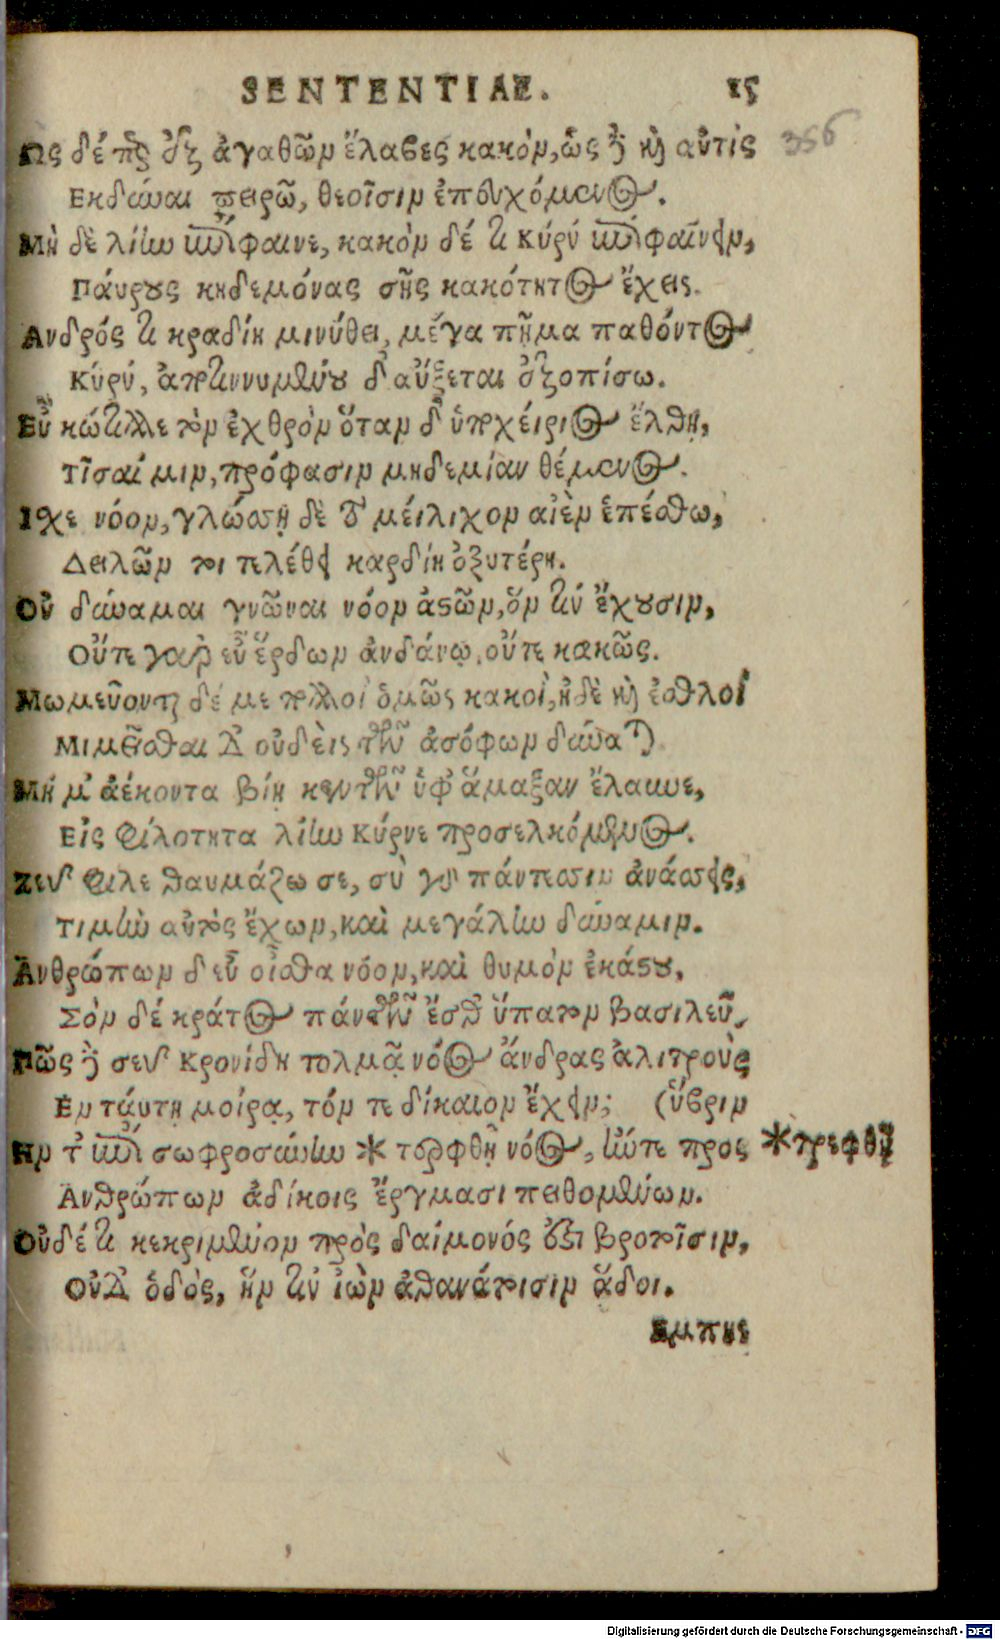 SENTENTIAE. 15
Ως δέ περ ἐξ ἀγαθῶν ἔλαβες κακὸν, ὣς ἢ καὶ αὖτις 356
Εκδῦναι πειρῶ, θεοῖσιν ἐπευχόμενος.
Μὴ δὲ λίην ἐπίφαινε, κακὸν δέ τε Κύρνε ἐπιφαίνειν,
Παύρους κηδεμόνας σῆς κακότητος ἔχεις.
Ανδρός τε κραδίη μινύθει, μέγα πῆμα παθόντος
Κύρνε, ἀποτιννυμένου δ' αὔξεται ἐξοπίσω.
Εὖ κώτιλλε τὸν ἐχθρὸν ὅταν δ' ὑποχείριος ἔλθῃ,
Τῖσαί μιν, πρόφασιν μηδεμίαν θέμενος.
Ισχε νόον, γλώσσῃ δὲ τὸ μείλιχον αἰὲν ἐπέσθω,
Δειλῶν τοι τελέθει καρδίη ὀξυτέρη.
Οὐ δύναμαι γνῶναι νόον ἀστῶν, ὅν τιν' ἔχουσιν,
Οὔτε γαρ εὖ ἕρδων ἁνδάνω, οὔτε κακῶς.
Μωμεῦονται δέ με πολλοὶ ὁμῶς κακοὶ, ἠδὲ καὶ ἐσθλοί
Μιμεῖσθαι δ' οὐδεὶς τῶν ἀσόφων δύναται.
Μή μ' ἀέκοντα βίῃ κεντῶν ὑφ' ἅμαξαν ἔλαυνε,
Εἰς φιλότητα λίην Κύρνε προσελκόμενος.
Ζεῦ φίλε θαυμάζω σε, σὺ γὰρ πάντεσσιν ἀνάσσεις,
Τιμὴν αὐτὸς ἔχων, καὶ μεγάλην δύναμιν.
Ἀνθρώπων δ' εὖ οἶσθα νόον, καὶ θυμὸν ἑκάστου,
Σὸν δὲ κράτος πάντων ἔσθ' ὕπατον βασιλεῦ.
Πῶς δή σευ Κρονίδη τολμᾷ νόος ἄνδρας ἀλιτροὺς
Εν ταύτῃ μοίρᾳ, τόν τε δίκαιον ἔχειν; (ὕβριν
Ην τ' ἐπὶ σωφροσύνην * τορφθῇ νόος, ἤν τε προς *τρεφθῇ
Ἀνθρώπων ἀδίκοις ἔργμασι πειθομένων.
Οὐδέ τι κεκριμένον πρὸς δαίμονός ἐστι βροτοῖσιν,
Οὐδ' ὁδὸς, ἥν τιν' ἰὼν ἀθανάτοισιν ἅδοι.
Εμπης
Digitalisierung gefördert durch die Deutsche Forschungsgemeinschaft - DFG